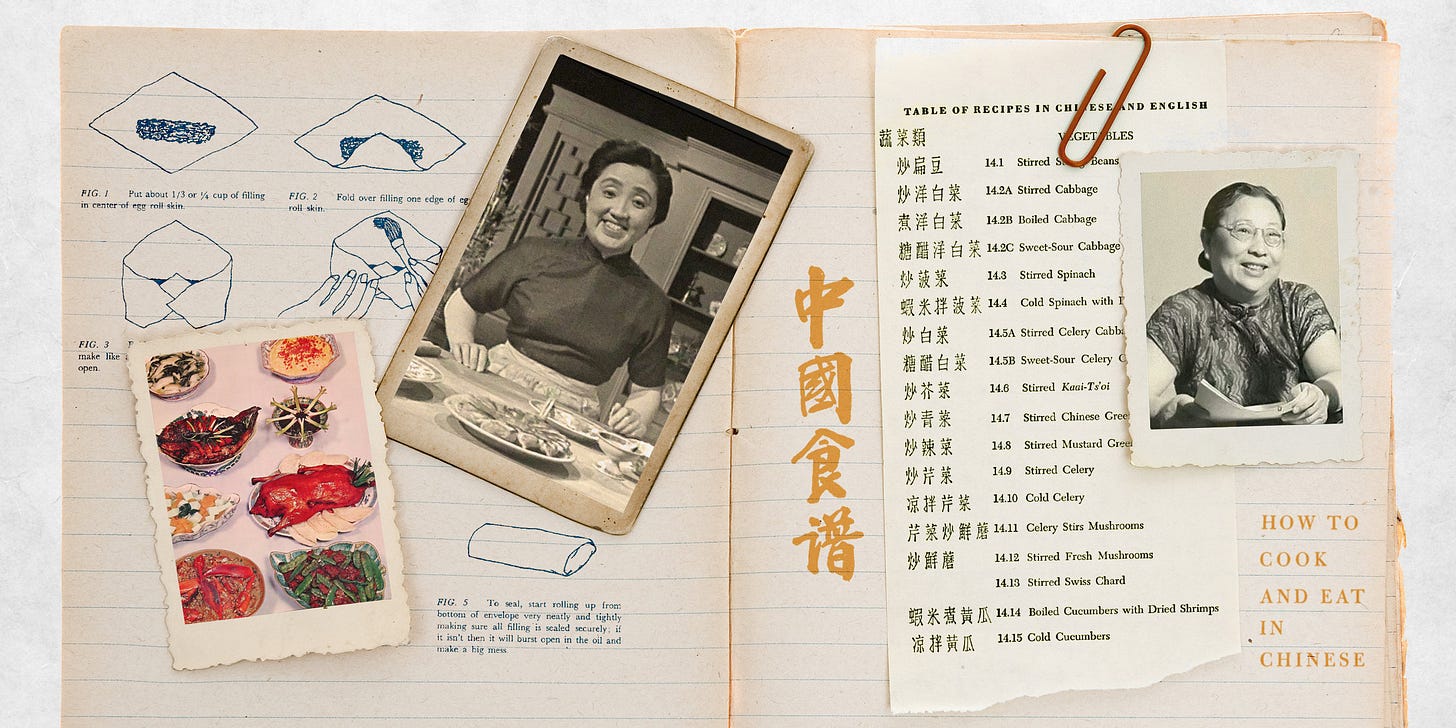 FIG. 1 Put about 1/3 or 1/4 cup of filling
in center of egg roll skin.
FIG. 2 Fold over filling one edge of
roll skin.
FIG. 3
make like
open.
FIG. 5 To seal, start rolling up from
bottom of envelope very neatly and tightly
making sure all filling is sealed securely; if
it isn't then it will burst open in the oil and
make a big mess
中國食谱
TABLE OF RECIPES IN CHINESE AND ENGLISH
蔬菜類 VEGETABLES
炒扁豆 14.1 Stirred String Beans
炒洋白菜 14.2A Stirred Cabbage
煮洋白菜 14.2B Boiled Cabbage
糖醋洋白菜 14.2C Sweet-Sour Cabbage
炒菠菜 14.3 Stirred Spinach
蝦米拌菠菜 14.4 Cold Spinach with
炒白菜 14.5A Stirred Celery
糖醋白菜 14.5B Sweet-Sour Celery
炒芥菜 14.6 Stirred Kaai-Ts'oi
炒青菜 14.7 Stirred Chinese
炒辣菜 14.8 Stirred Mustard
炒芹菜 14.9 Stirred Celery
凉拌芹菜 14.10 Cold Celery
芹菜炒鮮蘑 14.11 Celery Stirs Mushrooms
炒鮮蘑 14.12 Stirred Fresh Mushrooms
14.13 Stirred Swiss Chard
蝦米煮黃瓜 14.14 Boiled Cucumbers with Dried Shrimps
凉拌黃瓜 14.15 Cold Cucumbers
HOW TO
COOK
AND EAT
IN
CHINESE